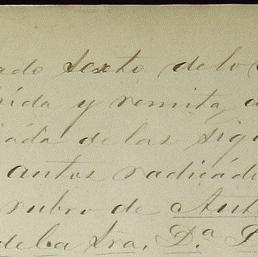 ado sexto de lo
ida y remita,
ada de las sigu
autos radicado
rubro de Aut
de la Sra. D.ª